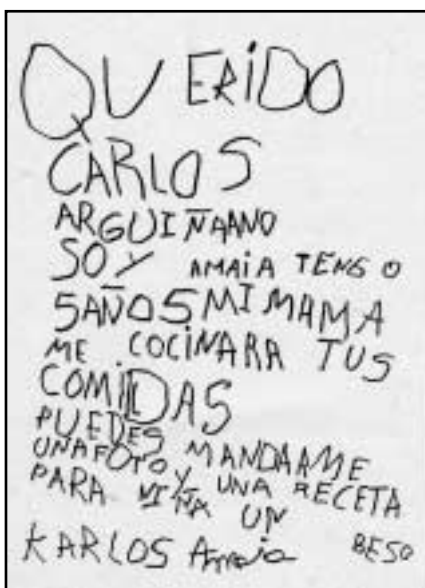 QUERIDO
CARLOS
ARGUIÑAANO
SOY AMAIA TENGO
5 AÑOS MI MAMA
ME COCINARA TUS
COMIDAS
PUEDES MANDAARME
UNA FOTO Y UNA RECETA
PARA NIÑA UN BESO
KARLOS Amaia